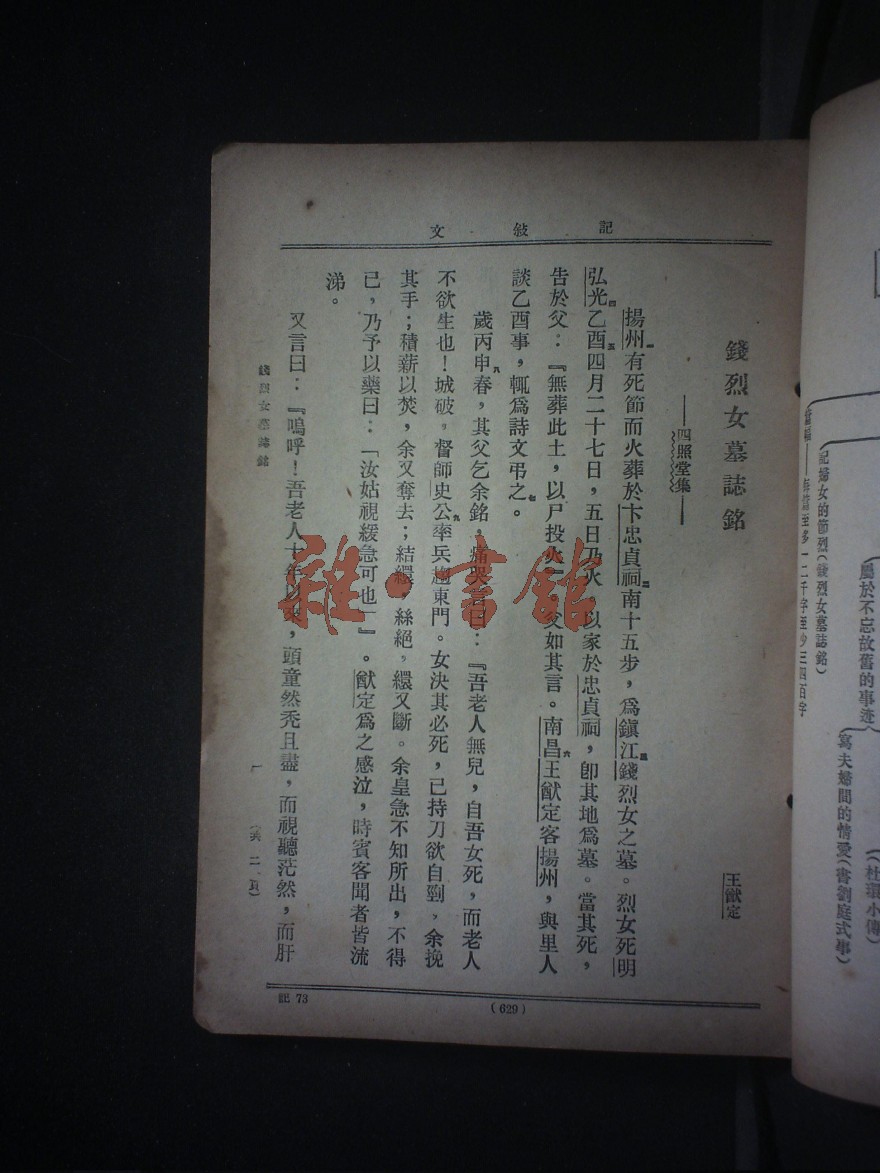 記敍文
錢烈女墓誌銘
——四照堂集——
王猷定
揚州有死節而火葬於卞忠貞祠南十五步，爲鎭江錢烈女之墓。烈女死明
弘光乙酉四月二十七日，五日乃火，以家於忠貞祠，卽其地爲墓。當其死，
告於父：『無葬此土，以尸投火』父如其言。南昌王猷定客揚州，與里人
談乙酉事，輒爲詩文弔之。
歲丙申春，其父乞余銘，痛哭言曰：『吾老人無兒，自吾女死，而老人
不欲生也！城破，督師史公率兵趨東門。女決其必死，已持刀欲自剄，余挽
其手；積薪以焚，余又奪去；結繯，絲絕，繯又斷。余皇急不知所出，不得
已，乃予以藥曰：「汝姑視緩急可也」』。猷定爲之感泣，時賓客聞者皆流
涕。
又言曰：『嗚呼！吾老人十年以來，頭童然禿且盡，而視聽茫然，而肝
錢烈女墓誌銘
一
(共二頁)
記 73
(629)
雜·書館
記婦女的節烈(錢烈女墓誌銘)
屬於不忘故舊的事迹
寫夫婦間的情愛(書劉庭式事)
(杜環小傳)